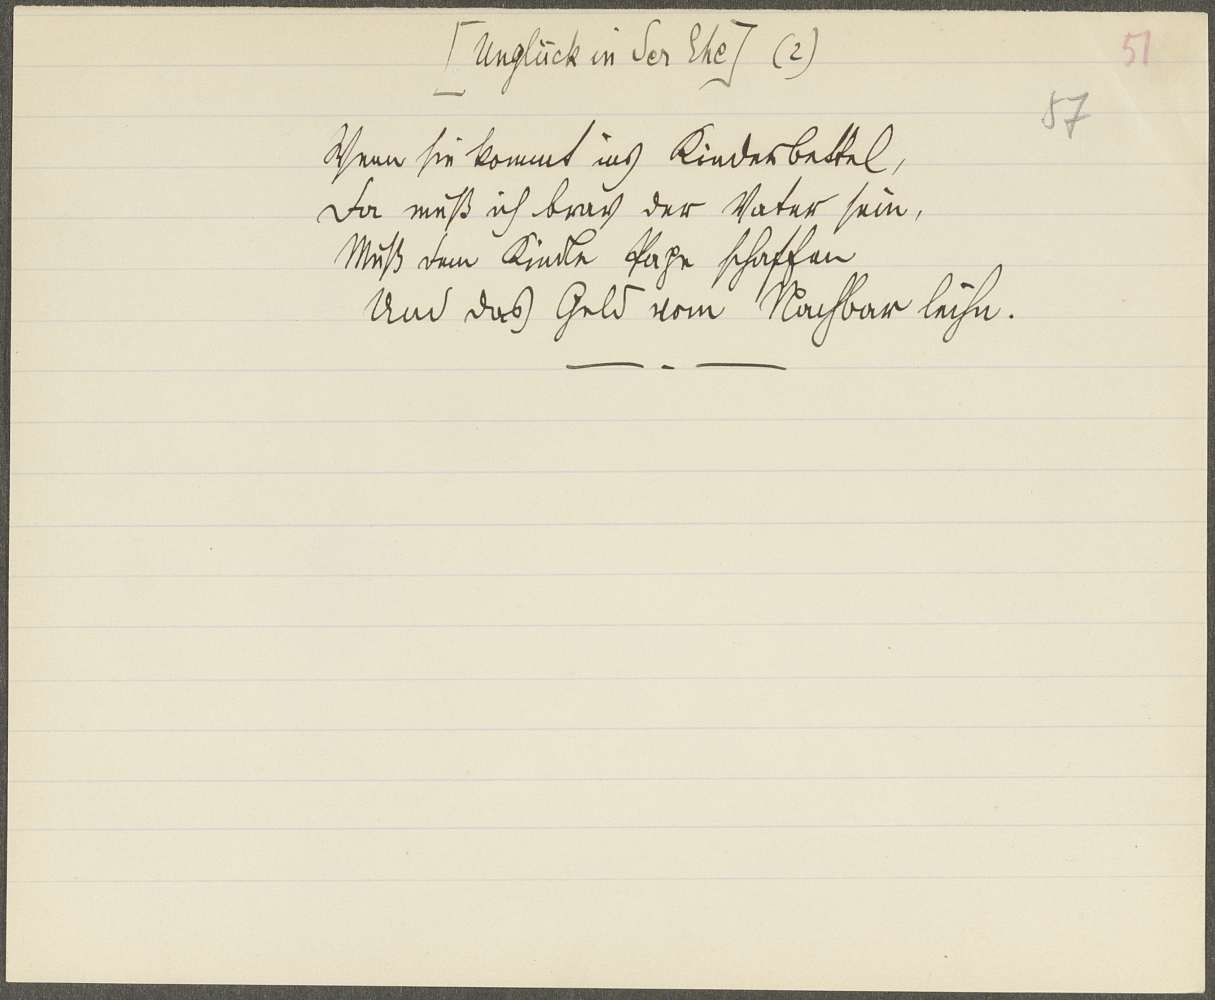 [Unglück in der Ehe] (2)
51
87
Wenn sie kommt ins Kinderbettel,
Da muß ich brav der Vater sein,
Muß dem Kindle Pape schaffen
Und das Geld vom Nachbar leihn.